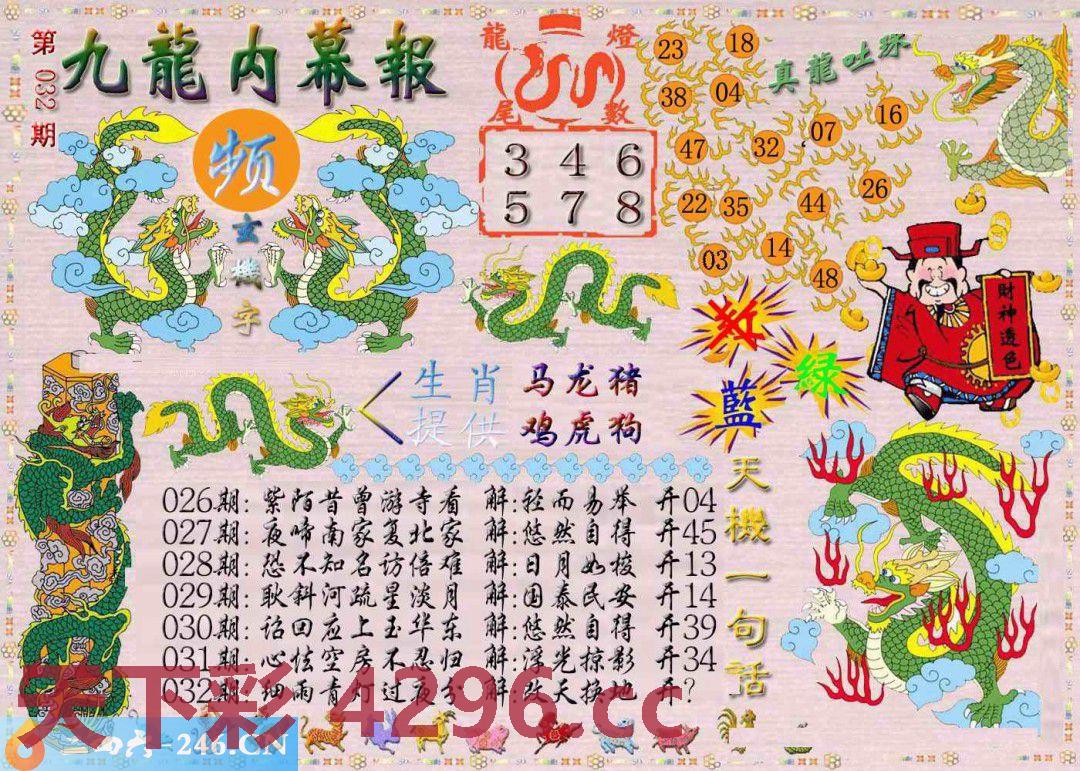 第032期
九龍内幕報
頻
玄機字
龍燈
尾數
3 4 6
5 7 8
23 18
38 04
47 32 07 16
22 35 44 26
03 14 48
真龍吐珠
財神透色
红
綠
藍
生肖 马龙猪
提供 鸡虎狗
天機一句話
026期: 紫陌昔曾游寺看 解:轻而易举 开04
027期: 夜啼南家复北家 解:悠然自得 开45
028期: 恐不知名访倍难 解:日月如梭 开13
029期: 耿斜河疏星淡月 解:国泰民安 开14
030期: 诏回应上玉华东 解:悠然自得 开39
031期: 心怯空房不忍归 解:浮光掠影 开34
032期: 细雨青灯过夜分 解:改天换地 开?
天下彩 4296.cc
246.CN